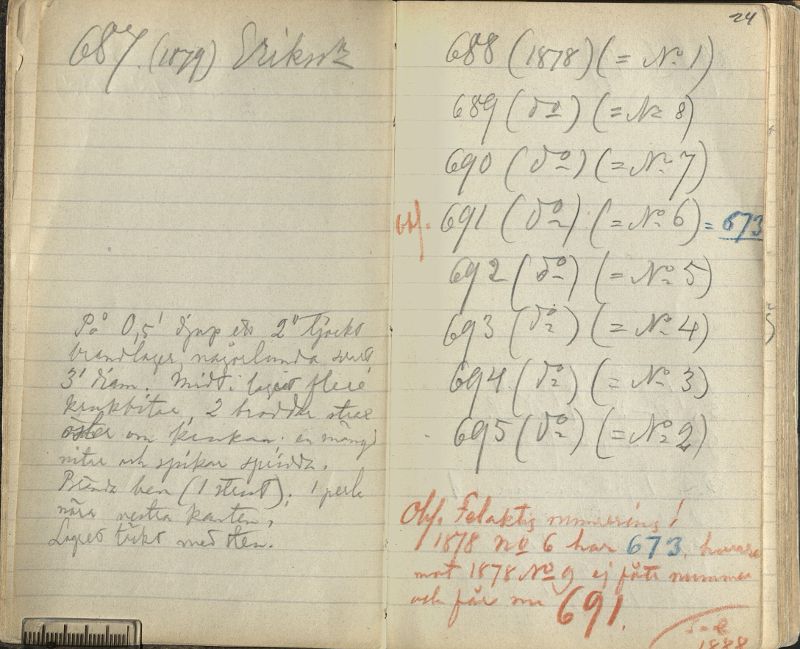 687. (1879) Erikson
På 0,5' djup ett 2" tjockt
brandlager någorlunda runt
3' diam. Midt i lagret flere
krukbitar, 2 broddar strax
öster om krukan; en mängd
nitar och spikar spridda.
Brända ben (1 stent); 1 perla
nära vestra kanten.
Lagret täkt med sten.
24
688 (1878) (= No 1)
689 (do) (= No 8)
690 (do) (= No 7)
Obs. 691 (do) (= No 6) = 673
692 (do) (= No 5)
693 (do) (= No 4)
694 (do) (= No 3)
695 (do) (= No 2)
Obs. Felaktig numrering!
1878 No 6 har 673, hvare
mot 1878 No 9 ej fått nummer
och får nu 691.
1888